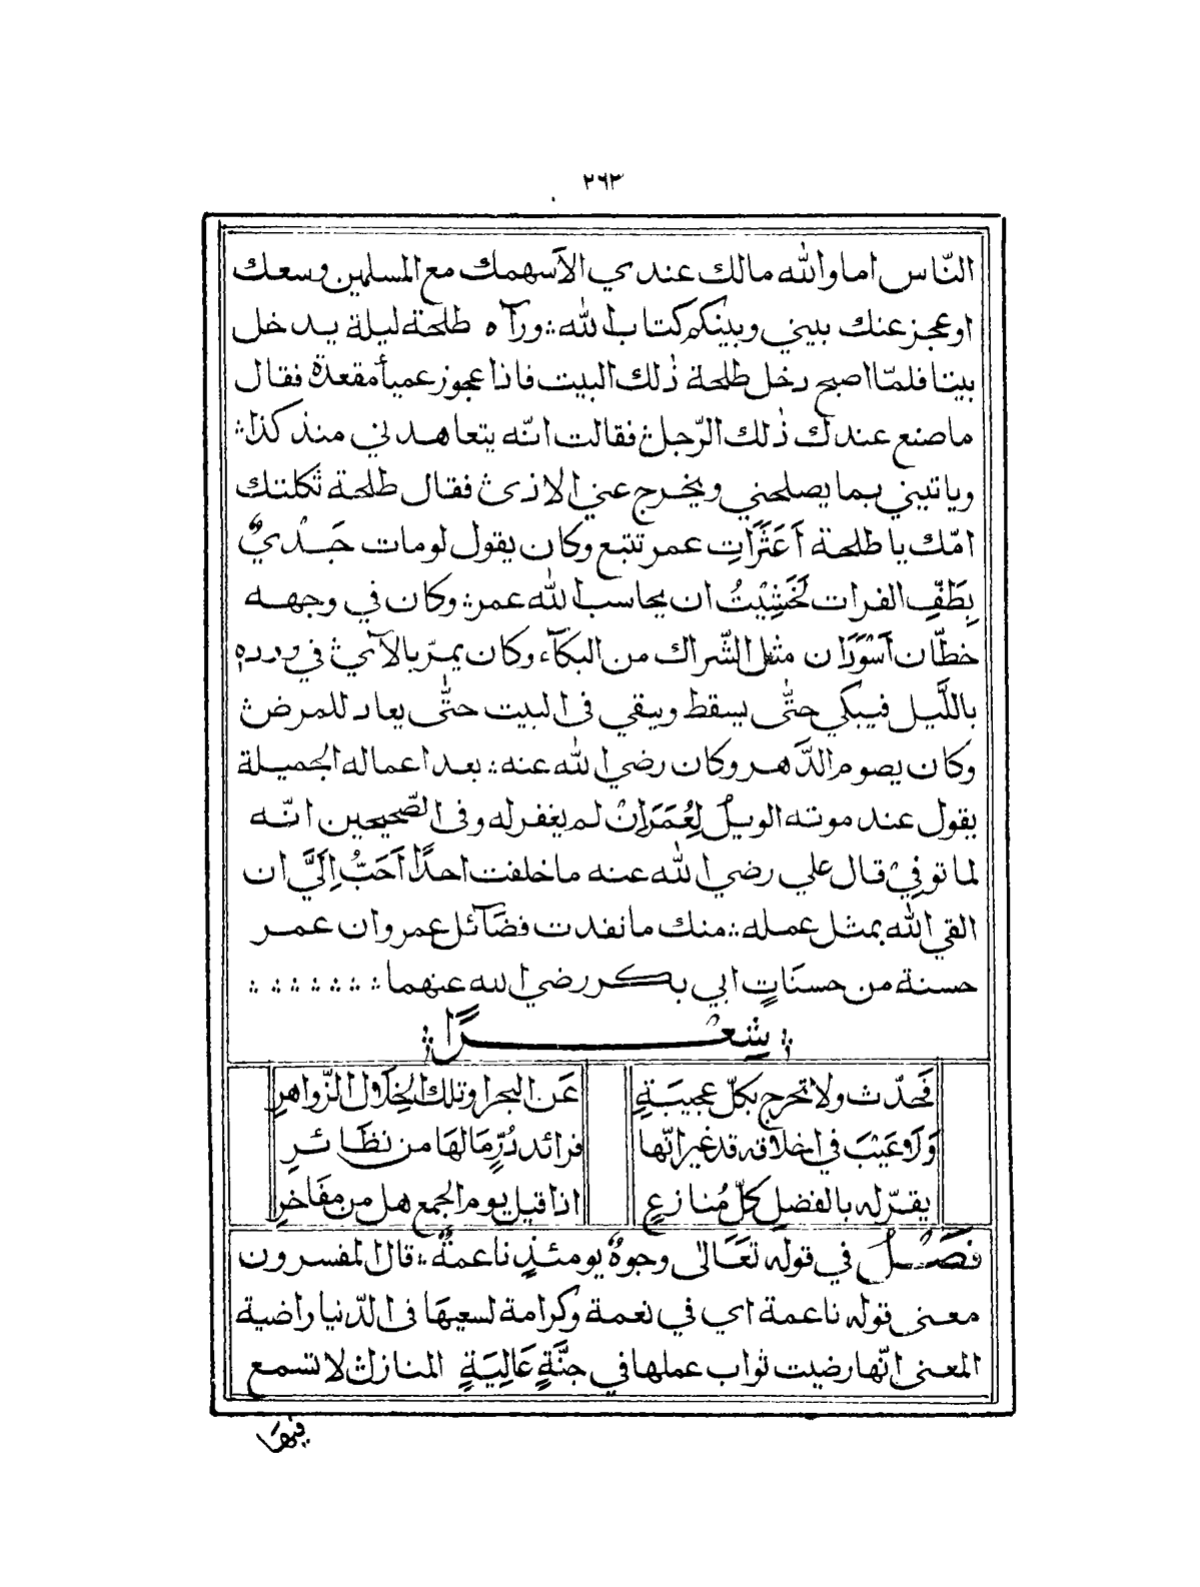 ٢٦٣
النّاس اما والله مالك عندي الاّ سهمك مع المسلمين وسعك
او عجز عنك بيني وبينكم كتاب الله؞ ورآه طلحة ليلة يدخل
بيتا فلمّا اصبح دخل طلحة ذٰلك البيت فاذا عجوز عميأ مقعدة فقال
ما صنع عندك ذٰلك الرّجل؞ فقالت انّه يتعاهدني منذ كذا؞
وياتيني بما يصلحني ويخرج عني الاذى؞ فقال طلحة ثكلتك
امّك يا طلحة أَعَثَرَاتِ عمر تتبع وكان يقول لو مات جَدْيٌ
بِطَفِّ الفرات لَخَشِيْتُ ان يحاسب الله عمر؞ وكان في وجهه
خطّان اَسْوَدَان مثل الشّراك من البكآء وكان يمرّ بالآي؞ في ورده
باللّيل فيبكي حتّٰى يسقط ويبقي فى البيت حتّٰى يعاد للمرض؞
وكان يصوم الدّهر وكان رضي الله عنه؞ بعد اعماله الجميلة
يقول عند موته الويلُ لِعُمَرَ اِنْ لم يغفر له وفى الصّحيحين انّه
لما توفِيْ قال علي رضي الله عنه ما خلفت احدًا اَحَبُّ اِلَيَّ ان
القي الله بمثل عمله؞ منك ما نفدت فضآئل عمر وان عمر
حسنة من حسنَاتِ ابي بكر رضي الله عنهما؞ ؞ ؞ ؞ ؞ ؞ ؞
؞ شِعْرًا ؞
فَحَدّث ولا تحرج بكلّ عجيبَةٍ عَن البحر اوتلك الخِلَال الزّواهرِ
وَلَا عَيْبَ في اخلاقه قد غير انّها فرائد دُرٍّ مَالهَا من نظَائرِ
يقرّ له بالفضل كلّ مُنازعٍ اذا قيل يوم الجمع هل من مفَاخرِ
فَصْلٌ في قوله تعَالىٰ وجوهٌ يومئذٍ ناعمةٌ؞ قال المفسرون
معنى قوله ناعمة اي في نعمة وكرامة لسعيهَا فى الدّنيا راضية
المعنى انّها رضيت ثواب عملها في جنَّةٍ عَالِيَةٍ المنازل لا تسمع
فيهَا